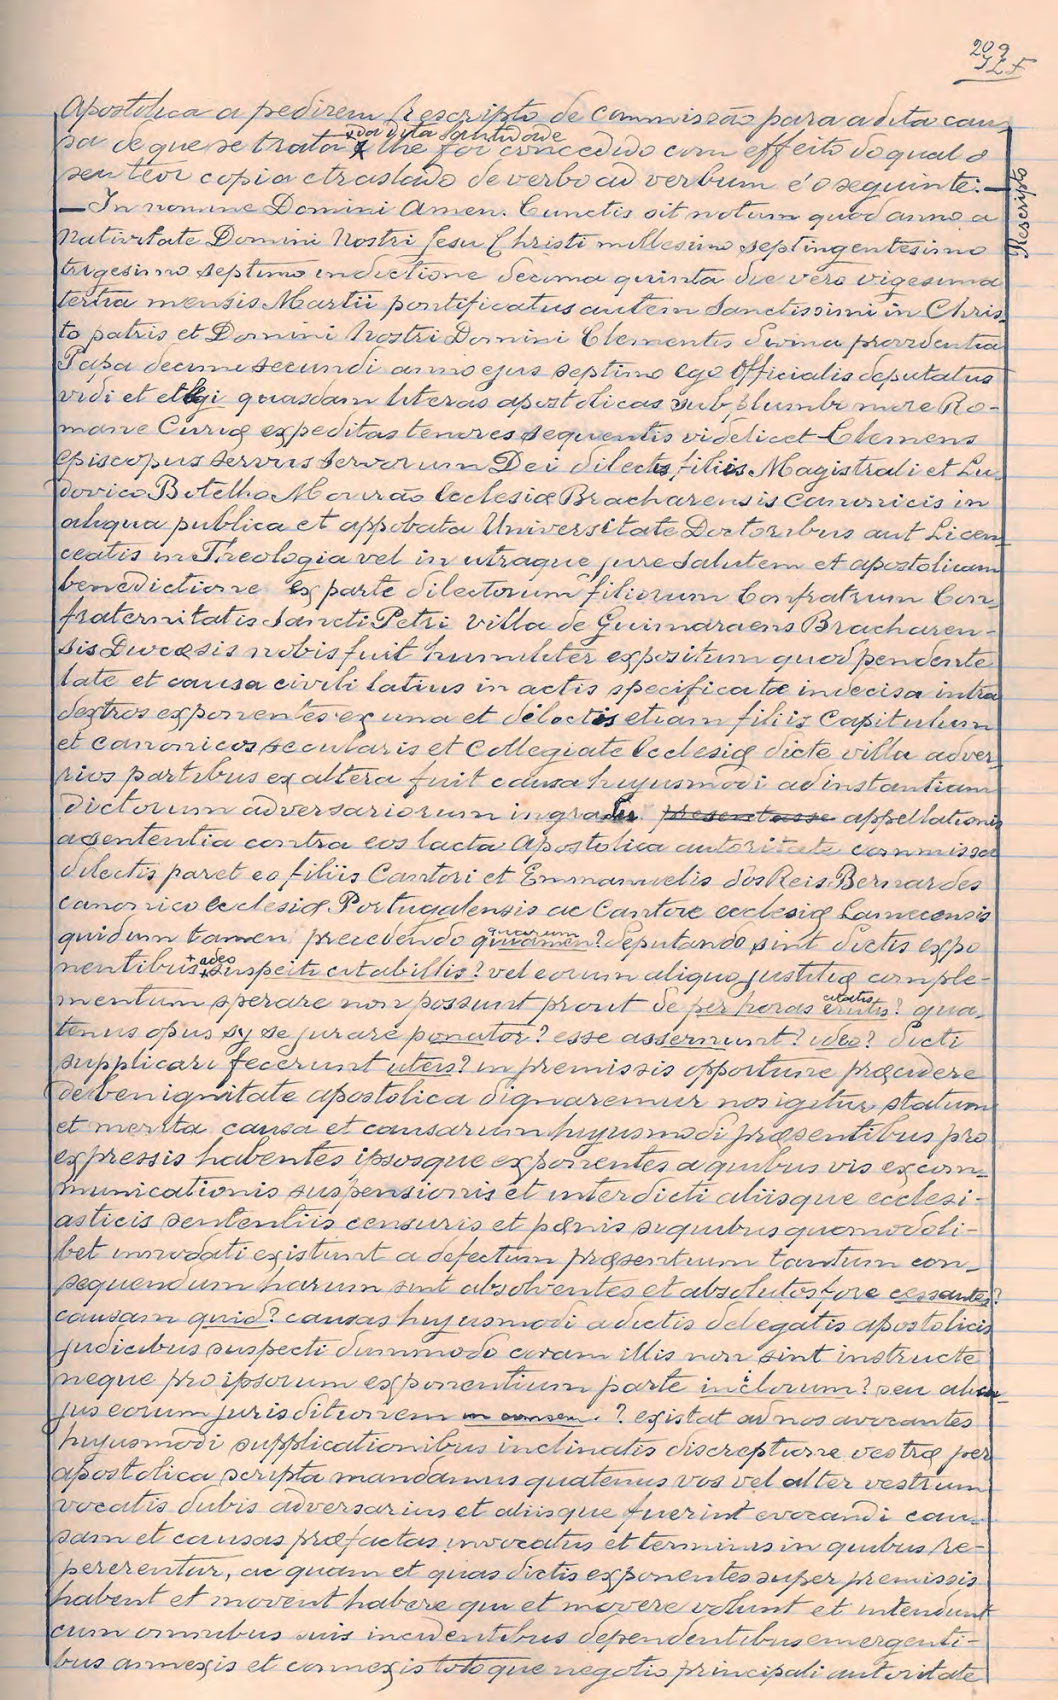 209
Apostolica a pedirem Rescripto de commissão para a dita cau-
sa de que se trata lhe foi concedido com effeito do qual o
da dita Santidade
seu teor copia e traslado de verbo ad verbum é o seguinte: —
Rescripto
— In nomine Domini Amen. Cunctis sit notum quod anno a
Nativitate Domini Nostri Jesu Christi millesimo septingentesimo
trigesimo septimo indictione decima quinta die vero vigesima
tertia mensis Martii pontificatus autem Sanctissimi in Chris-
to patris et Domini Nostri Domini Clementis divina providentia
Papa decimi secundi anno ejus septimo ego Officialis deputatus
vidi et et legi quasdam literas apostolicas sub plumbo more Ro-
mane Curiæ expeditas tenores sequentis videlicet Clemens
Episcopus servus servorum Dei dilectis filiis Magistrali et Lu-
dovico Botelho Mourão Ecclesiæ Bracharensis Canonicis in
aliqua publica et approbata Universitate Doctoribus aut Licen-
ceatis in Theologia vel in utraque jure salutem et apostolicam
benedictione Ex parte dilectorum filiorum Confratrum Con-
fraternitatis Sancti Petri villa de Guimaraens Bracharen-
sis Diocæsis nobis fuit humiliter expositum quod pendente
late et causa civili latius in actis specificata indecisa intra
dextros exponentes ex una et dilectis etiam filiis Capitulum
et canonicos secularis et Collegiate Ecclesiæ dicte villa adver-
rios partibus ex altera fuit causa hujusmodi ad instantiam
dictorum adversariorum in gradu presentasse appellationis
a sententia contra eos lacta Apostolica autoritate commissa
dilectis paret eo filiis Cantori et Emmanuelis dos Reis Bernardes
canonico ecclesiæ Portugalensis ac Cantore ecclesiæ Lamecensis
quidum tamen precedendo quivamen? deputando sint dictis expo
quorum
nentibus + suspecti citabillis? vel eorum aliquo justitiæ comple-
+ adeo
mentum sperare non possunt prout de per horas erutis? qua-
citatis
tenus opus sy se jurare ponator? esse assernunt? ideo? dicti
supplicari fecerunt uteis? in premissis opportune præcidere
de benignitate apostolica dignaremur nos igitur statum
et merita causa et causarum hujusmodi præsentibus pro
expressis habentes ipsosque exponentes a quibus vis excom-
municationis suspensionis et interdicti aliisque ecclesi-
asticis sententiis censuris et pœnis si quibus quomodoli-
bet innodati existunt a defectum præsentium tantum con-
sequendum harum sint absolventes et absolutos fore cessantes?
causam quid? causas hujusmodi a dictis delegatis apostolicis
judicibus suspecti dummodo coram illis non sint instructe
neque pro ipsorum exponentium parte inclorum? seu alicu-
jus eorum jurisditionem in consen. ? existat ad nos avocantes
hujusmodi supplicationibus inclinatis discreptione vestræ per
apostolica scripta mandamus quatenus vos vel alter vestrum
vocatis dubis adversarius et aliisque fuerint evocandi cau-
sam et causas præfactas invocatus et terminis in quibus re-
pererentur, ac quam et quas dictis exponentes super premissis
habent et movent habere qui et movere volunt et intendunt
cum omnibus suis incidentibus dependentibus emergenti-
bus annexis et connexis totoque negotio principali autoritate